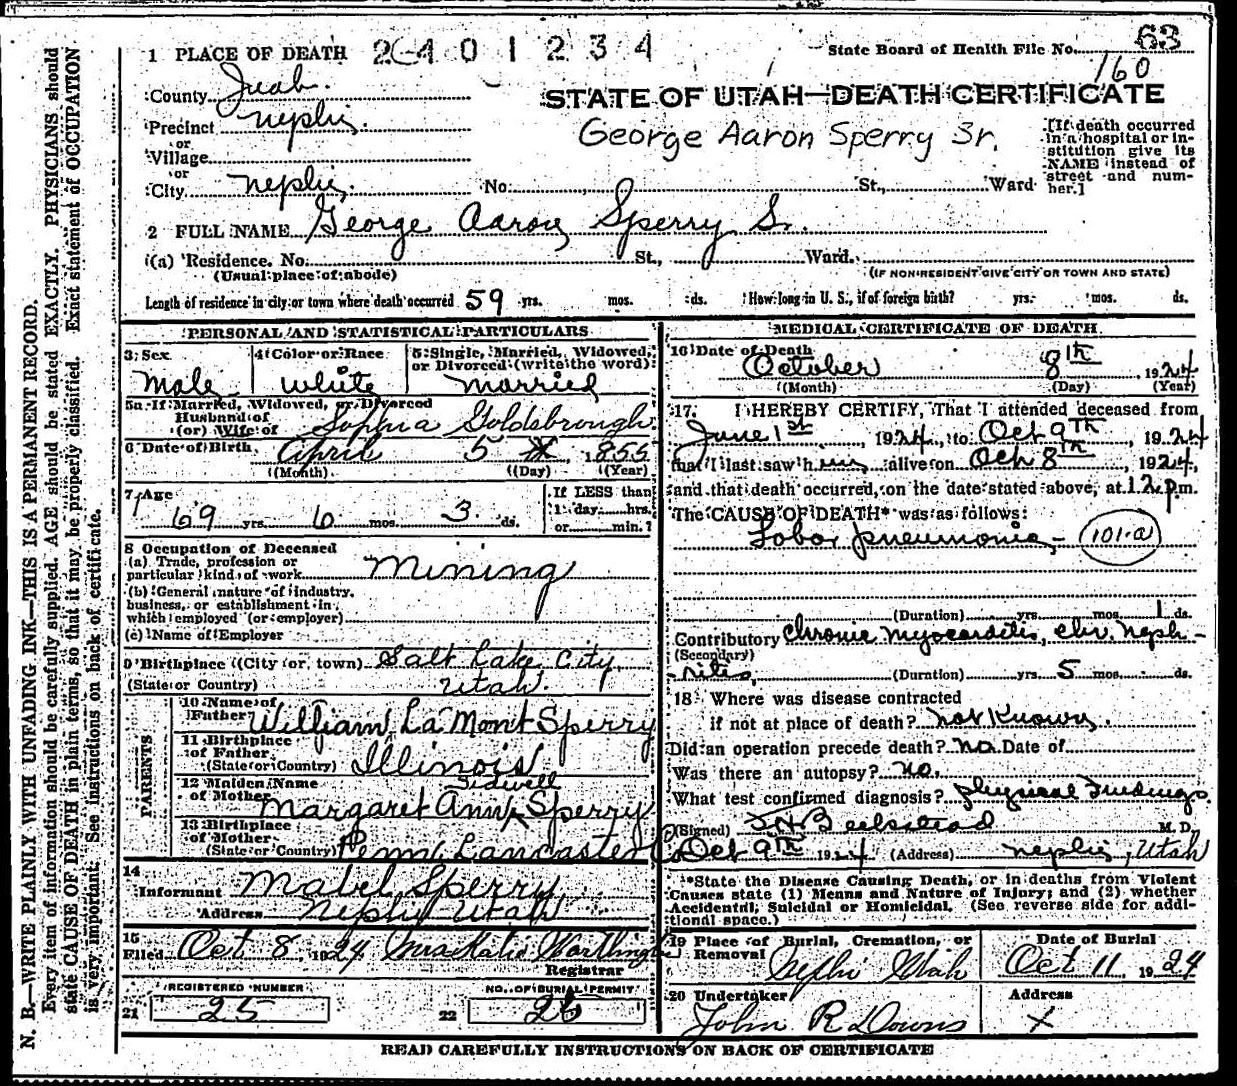 1 PLACE OF DEATH 2401234
State Board of Health File No. 63
160
County Juab.
STATE OF UTAH—DEATH CERTIFICATE
Precinct Nephi.
George Aaron Sperry Sr.
or
Village
or
City Nephi. No. St., Ward
[If death occurred in a hospital or institution give its NAME instead of street and number.]
2 FULL NAME George Aaron Sperry Sr.
(a) Residence. No. St., Ward.
(Usual place of abode) (IF NON-RESIDENT GIVE CITY OR TOWN AND STATE)
Length of residence in city or town where death occurred 59 yrs. mos. ds. How long in U. S., if of foreign birth? yrs. mos. ds.
PERSONAL AND STATISTICAL PARTICULARS
3 Sex
Male
4 Color or Race
White
5 Single, Married, Widowed, or Divorced (write the word)
Married
5a If Married, Widowed, or Divorced
Husband of
(or) Wife of Sophia Goldsbrough
6 Date of Birth April 5 1855
(Month) (Day) (Year)
7 Age
69 yrs. 6 mos. 3 ds.
If LESS than
1 day hrs.
or min.?
8 Occupation of Deceased
(a) Trade, profession or
particular kind of work Mining
(b) General nature of industry,
business, or establishment in
which employed (or employer)
(c) Name of Employer
9 Birthplace (City or town) Salt Lake City
(State or Country) Utah.
PARENTS
10 Name of
Father William La Mont Sperry
11 Birthplace
of Father
(State or Country) Illinois
12 Maiden Name Tidwell
of Mother Margaret Ann Sperry
13 Birthplace
of Mother
(State or Country) Penn, Lancaster Co
14
Informant Mabel Sperry
Address Nephi Utah
15
Filed Oct 8 1924
Registrar
REGISTERED NUMBER
21 25
NO. OF BURIAL PERMIT
22 26
MEDICAL CERTIFICATE OF DEATH
16 Date of Death
October 8th 1924
(Month) (Day) (Year)
17. I HEREBY CERTIFY, That I attended deceased from
June 1st, 1924, to Oct 9th, 1924
that I last saw him alive on Oct 8th, 1924,
and that death occurred, on the date stated above, at 12 p.m.
The CAUSE OF DEATH* was as follows:
Lobar pneumonia, 101-a
(Duration) yrs. mos. 1 ds.
Contributory Chronic myocarditis, chr. neph-
(Secondary)
ritis, (Duration) yrs. 5 mos. ds.
18 Where was disease contracted
if not at place of death? not known.
Did an operation precede death? no. Date of
Was there an autopsy? no.
What test confirmed diagnosis? Physical Findings.
(Signed) M. D.
Oct 9th 1924 (Address) Nephi, Utah
*State the Disease Causing Death, or in deaths from Violent
Causes state (1) Means and Nature of Injury; and (2) whether
Accidental, Suicidal or Homicidal. (See reverse side for addi-
tional space.)
19 Place of Burial, Cremation, or
Removal Nephi Utah
Date of Burial
Oct 11 1924
20 Undertaker
John R Downs
Address
X
READ CAREFULLY INSTRUCTIONS ON BACK OF CERTIFICATE
N. B.—WRITE PLAINLY WITH UNFADING INK—THIS IS A PERMANENT RECORD.
Every item of information should be carefully supplied. AGE should be stated EXACTLY. PHYSICIANS should
state CAUSE OF DEATH in plain terms, so that it may be properly classified. Exact statement of OCCUPATION
is very important. See instructions on back of certificate.